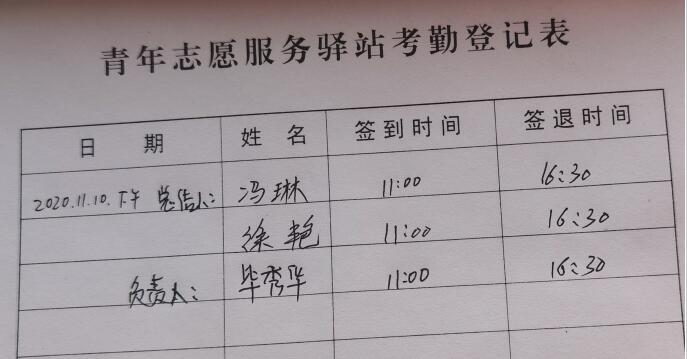 青年志愿服务驿站考勤登记表
日 期 姓 名 签到时间 签退时间
2020.11.10.下午 冯琳 11:00 16:30
徐艳 11:00 16:30
负责人: 毕秀华 11:00 16:30